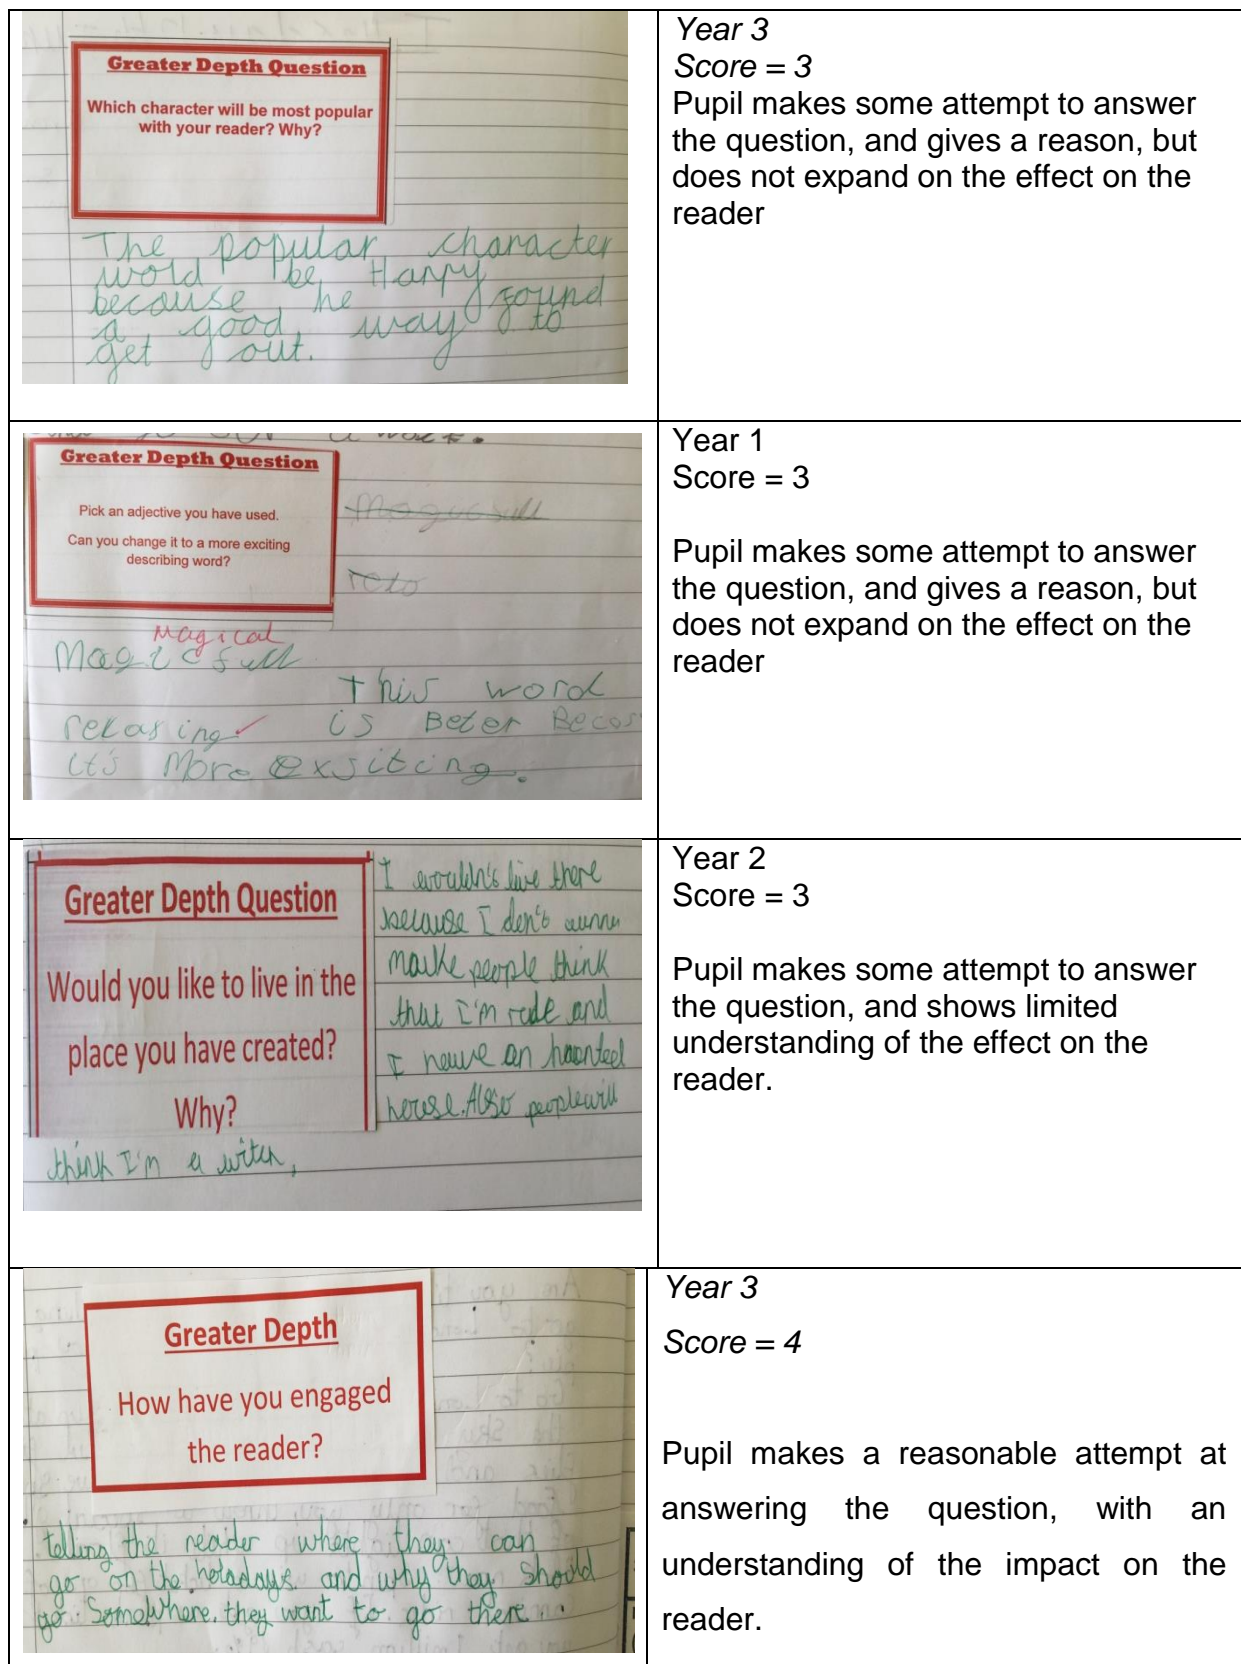 Greater Depth Question
Which character will be most popular
with your reader? Why?
The popular character
wold be Harry
because he found
a good way to
get out.
Year 3
Score = 3
Pupil makes some attempt to answer
the question, and gives a reason, but
does not expand on the effect on the
reader
Greater Depth Question
Pick an adjective you have used.
Can you change it to a more exciting
describing word?
Magical
Magicfull
This word
relaxing is Beter Becos
it's More exsiting.
Year 1
Score = 3
Pupil makes some attempt to answer
the question, and gives a reason, but
does not expand on the effect on the
reader
Greater Depth Question
Would you like to live in the
place you have created?
Why?
I wouldn't live there
because I don't wanna
make people think
that I'm rude and
I have an haonted
house. Also people will
think I'm a witch,
Year 2
Score = 3
Pupil makes some attempt to answer
the question, and shows limited
understanding of the effect on the
reader.
Greater Depth
How have you engaged
the reader?
telling the reader where they can
go on the holadays and why they should
go Somewhere. they want to go there.
Year 3
Score = 4
Pupil makes a reasonable attempt at
answering the question, with an
understanding of the impact on the
reader.